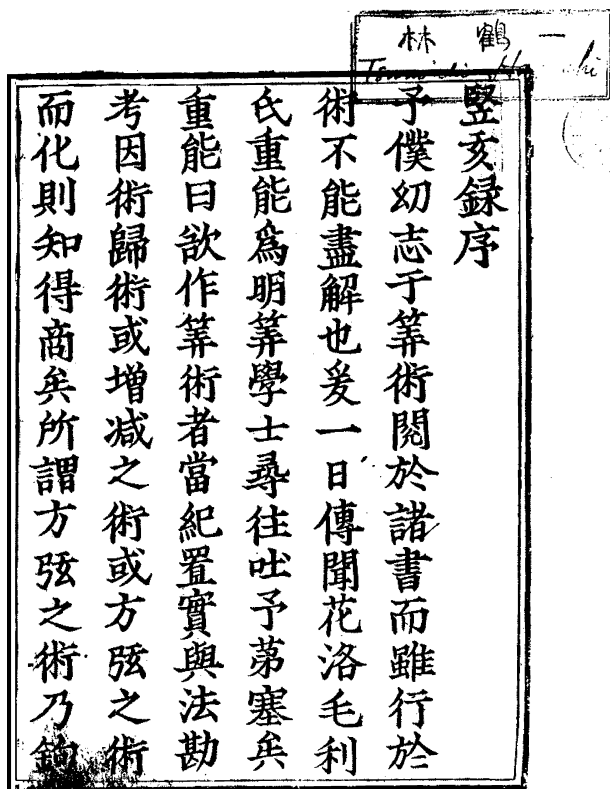 一鶴林
竪亥録序
予僕幼志于筭術閲於諸書而雖行於
術不能盡解也爰一日傳聞花洛毛利
氏重能爲明筭學士尋往吐予茅塞矣
重能曰欲作筭術者當紀置實與法勘
考因術歸術或増减之術或方弦之術
而化則知得商矣所謂方弦之術乃鉤